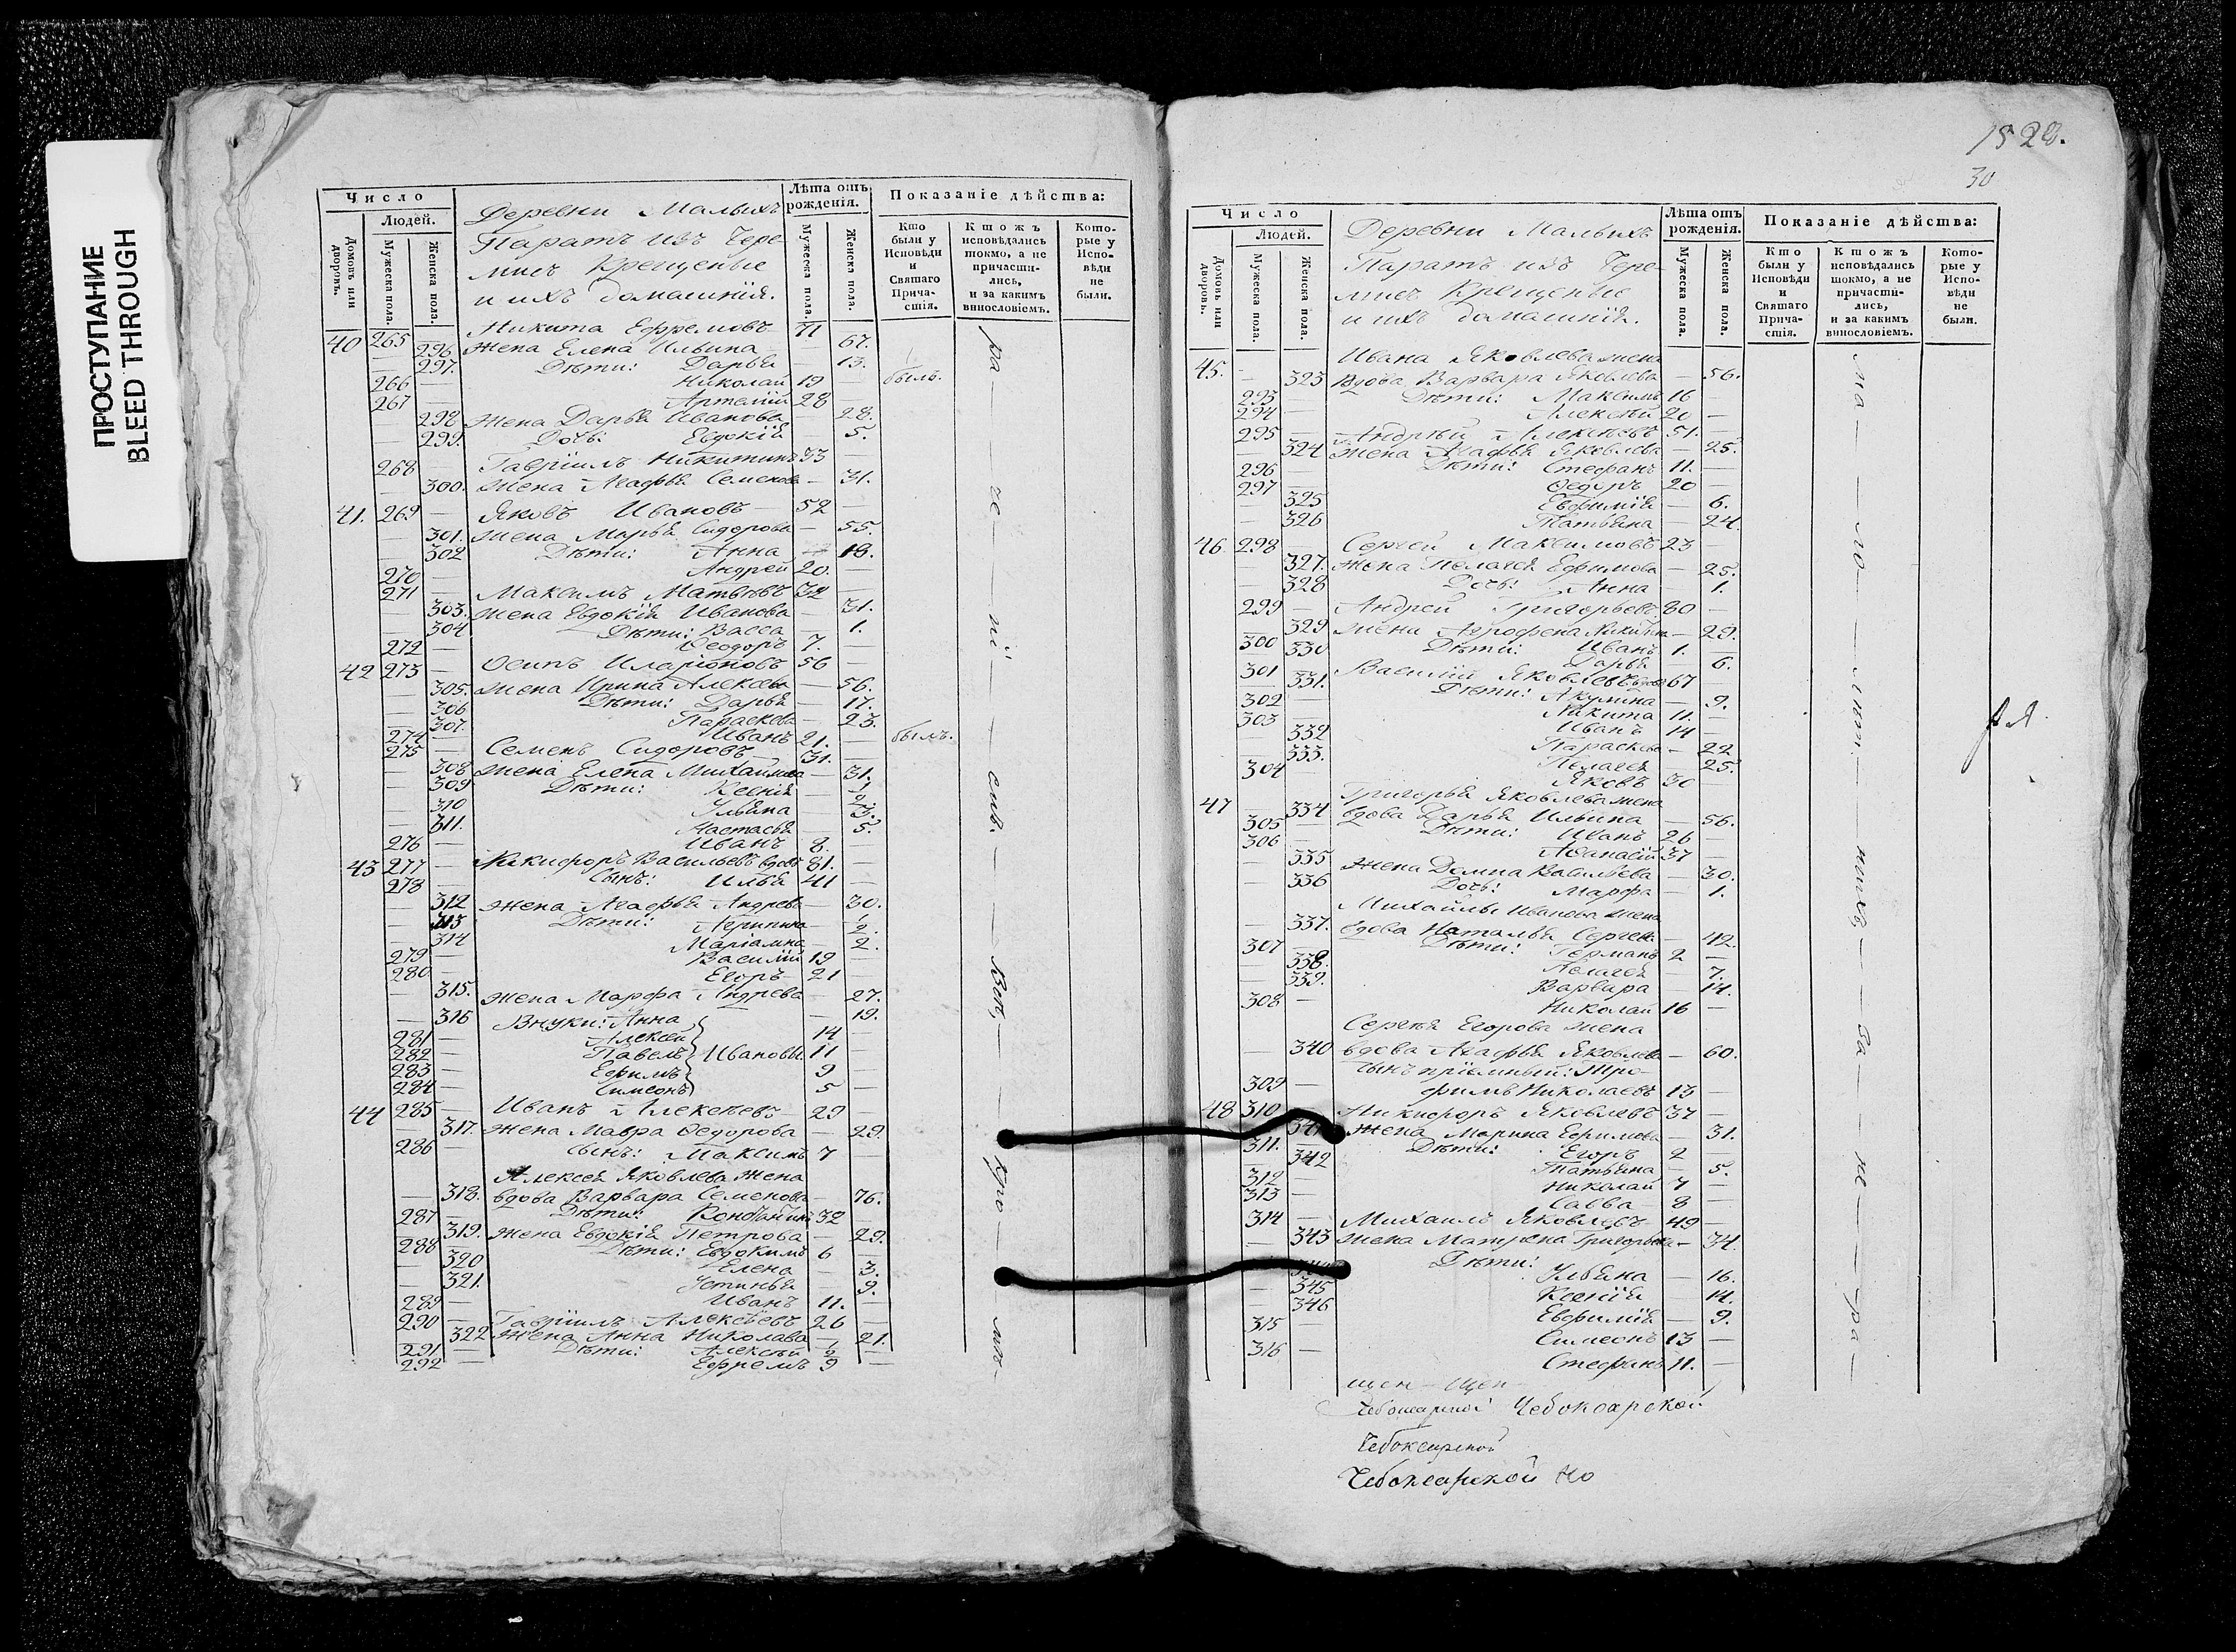 ПРОСТУПАНИЕ
BLEED THROUGH
Число
Людей.
Домовъ или дворовъ.
Мужеска пола.
Женска пола.
Деревни Малыхъ
Паратъ изъ Чере-
мисъ Крещеные
и ихъ домашнія.
Лѣта отъ рожденія.
Мужеска пола.
Женска пола.
Показаніе дѣйства:
Кто были у Исповѣди и Святаго Причастія.
Ктожъ исповѣдались токмо, а не причастились, и за какимъ винословіемъ.
Которые у Исповѣди не были.
40 265 — Никита Ефремовъ 71
— 296 жена Елена Ильина — 67.
— 297. Дѣти: Дарья — 13.
266 — Николай 19 — былъ.
267 — Артемій 28 —
— 298 жена Дарья Иванова — 28.
— 299. Дочь: Евдокія — 5.
268 — Гавріилъ Никитинъ 33 —
— 300. жена Агафья Семенова — 31.
41. 269 — Яковъ Ивановъ 52 —
— 301. жена Марья Сидорова — 55.
— 302 Дѣти: Анна — 18.
270 — Андрей 20. —
271 — Максимъ Матвѣевъ 32 —
— 303. жена Евдокія Иванова — 31.
— 304 Дѣти: Васса — 1.
272 — Ѳеодоръ 7. —
42 273 — Осипъ Иларіоновъ 56 —
— 305. жена Ирина Алексева — 56.
— 306 Дѣти: Дарья — 17.
— 307. Параскева — 23.
274 — Иванъ 21. — былъ.
275 — Семенъ Сидоровъ 31. —
— 308 жена Елена Михайлова — 31.
— 309 Дѣти: Ксенія —
— 310 Ульяна — 3.
— 311. Настасья — 5.
276 — Иванъ 8. —
43 277 — Никифоръ Васильевъ вдовъ 81. —
278 — Сынъ: Илья 41 —
— 312 жена Агафья Андрева — 30.
— 313 Дѣти: —
— 314 Маріамна — 2.
279 — Василій 19 —
280 — Егоръ 21 —
— 315. жена Марфа Андрева — 27.
— 316 Внуки: Анна — 19.
281 — Алексей 14 —
282 — Павелъ Ивановы 11 —
283 — Ефимъ 9 —
284 — Симеонъ 5 —
44 285 — Иванъ Алексѣевъ 29 —
— 317. жена Мавра Ѳедорова — 29.
286 — Сынъ: Максимъ 7 —
Алексея Яковлева жена
— 318. вдова Варвара Семенова — 76.
287 — Дѣти: 32
— 319. жена Евдокія Петрова — 29.
288 — Дѣти: Евдокимъ 6 —
— 320 Елена — 3.
— 321. Устинья — 9.
289 — Иванъ 11. —
290 — Гавріилъ Алексѣевъ 26 —
— 322 жена Анна Николава — 21.
291 — Дѣти: Алексѣй ½ —
292 — Ефремъ 9 —
30
Число
Людей.
Домовъ или дворовъ.
Мужеска пола.
Женска пола.
Деревни Малыхъ
Паратъ изъ Чере-
мисъ Крещеные
и ихъ домашнія.
Лѣта отъ рожденія.
Мужеска пола.
Женска пола.
Показаніе дѣйства:
Кто были у Исповѣди и Святаго Причастія.
Ктожъ исповѣдались токмо, а не причастились, и за какимъ винословіемъ.
Которые у Исповѣди не были.
Ивана Яковлева жена
45. — 323 вдова Варвара Яковлева — 56.
293 — Дѣти: Максимъ 16 —
294 — Алексѣй 20 —
295 — Андрей Алексѣевъ 51. —
— 324 жена Агафья Яковлева — 25.
296 — Дѣти: Стефанъ 11. —
297 — Ѳедоръ 20 —
— 325 Евфимія — 6.
— 326 Татьяна — 24.
46 298 — Сергей Максимовъ 23 —
— 327. жена Пелагея Ефимова — 25.
— 328 Дочь: Анна — 1.
299 — Андрей Григорьевъ 30 —
— 329 жена Агрофена — 29.
300 — Дѣти: Иванъ 1. —
330 Дарья — 6.
301 — Василій Яковлевъ вдовъ 67 —
331. Дѣти: Акулина — 9.
302 — Никита 11. —
303 — Иванъ 14 —
332 Параскева — 22
333. Пелагея — 25.
304 — Яковъ 30 —
Григорья Яковлева жена
47 — 334 вдова Дарья Ильина — 56.
305 — Дѣти: Иванъ 26 —
306 — Аѳанасій 37 —
— 335 жена Домна Васильева — 30.
— 336 Дочь: Марфа — 1.
Михайлы Иванова жена
— 337. вдова Наталья Сергева — 42.
307 — Дѣти: Германъ 2 —
— 338. Пелагея — 7.
— 339. Варвара — 14.
308 — Николай 16 —
Сергѣя Егорова жена
— 340 вдова Агафья Яковлева — 60.
Сынъ пріемный: Тро-
309 — фимъ Николаевъ 13 —
48 310 Никифоръ Яковлевъ 37 —
жена Марина Ефимова — 31.
311. — Дѣти: Егоръ 2 —
342 Татьяна — 5.
312 — Николай 7 —
313 — Савва 8 —
314 — Михаилъ Яковлевъ 49 —
— 343 жена Матрена Григорьева — 34.
Дѣти:
Ульяна — 16.
— 345 Ксенія — 14.
— 346 Евфимія — 9.
315 — Симеонъ 13 —
316 — Стефанъ 11. —
щен — щен
Чебоксарской Чебоксарской
Чебоксарской
Чебоксарской Но